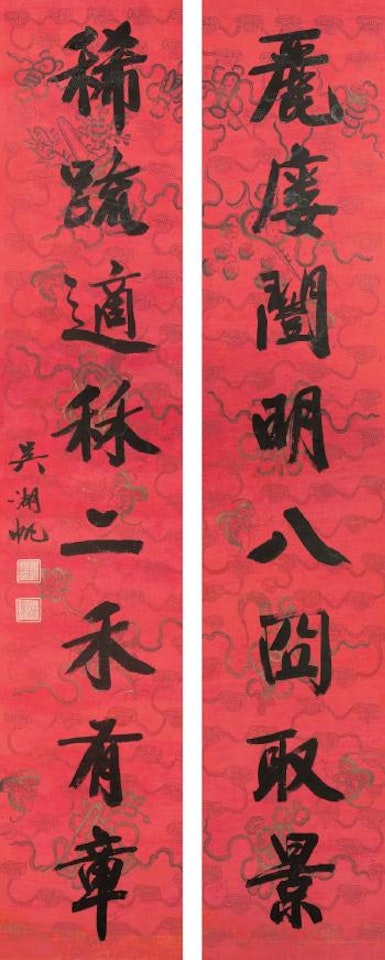 麗廔闓明八囧取景
稀疏適秝二禾有章
吳湖帆